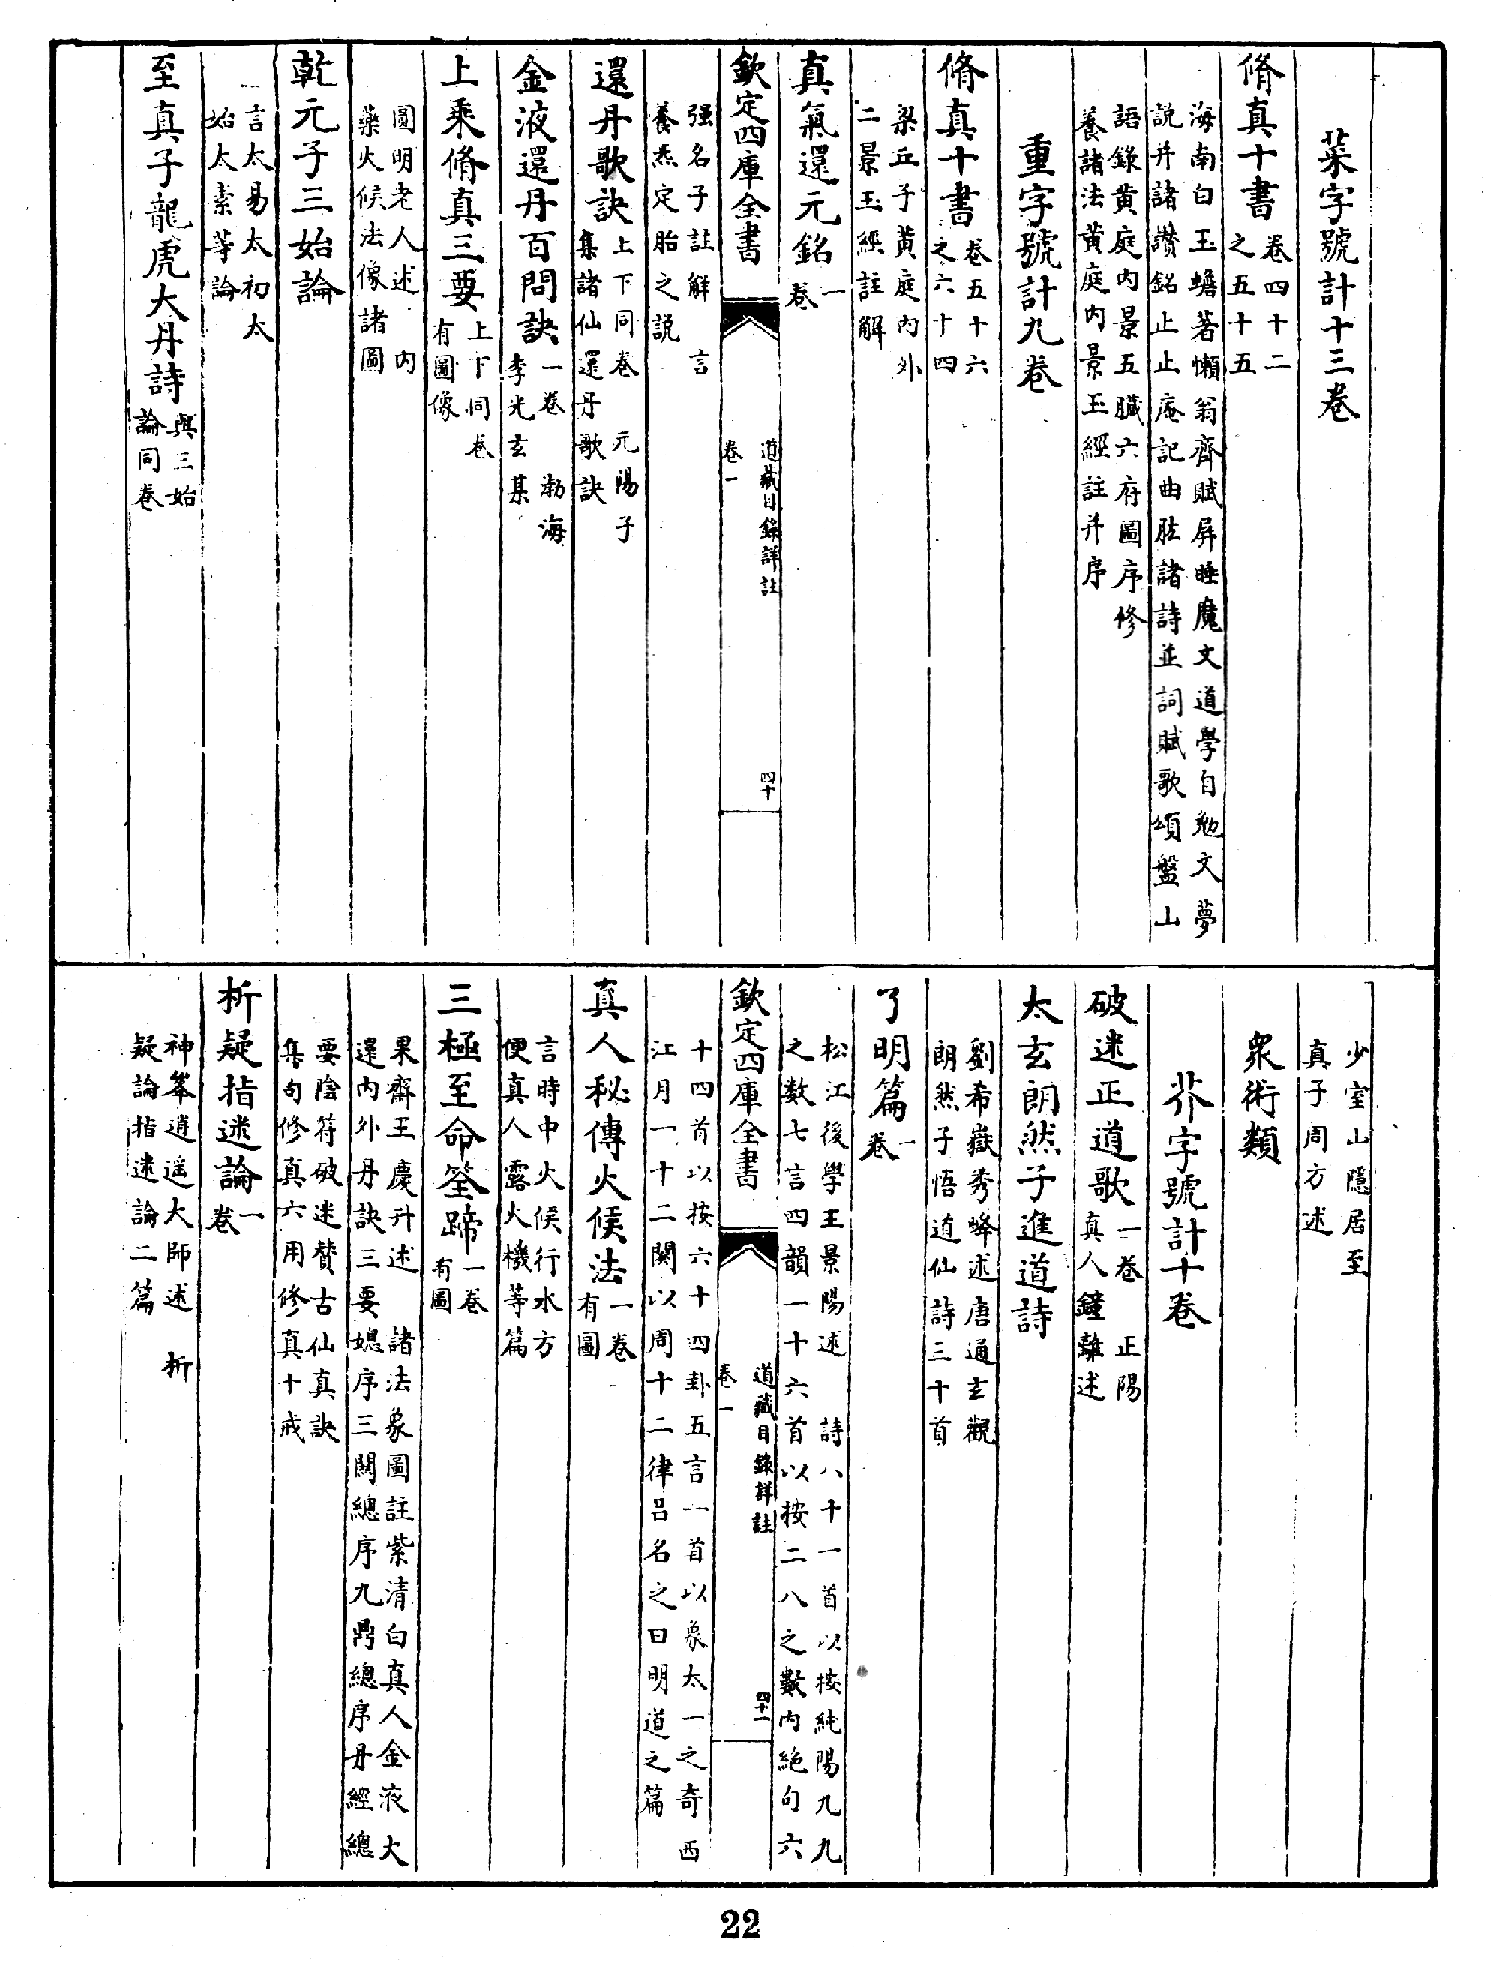 菜字號計十三卷
脩真十書卷四十二
之五十五
海南白玉蟾著懶翁齋賦屏睡魔文道學自勉文夢
説并諸讚銘止止庵記曲肱諸詩並詞賦歌頌盤山
語錄黄庭内景五臟六府圖序修
養諸法黄庭内景玉經註并序
重字號計九卷
脩真十書卷五十六
之六十四
梁丘子黄庭内外
二景玉經註解
真氣還元銘一
卷
欽定四庫全書
道藏目錄詳註
卷一
四十
强名子註解 言
養炁定胎之説
還丹歌訣上下同卷 元陽子
集諸仙還丹歌訣
金液還丹百問訣一卷 渤海
李光玄某
上乘脩真三要上下同卷
有圖像
圓明老人述 内
藥火候法像諸圖
乾元子三始論
言太易太初太
始太素等論
至真子龍虎大丹詩與三始
論同卷
少室山隱居至
真子周方述
衆術類
芥字號計十卷
破迷正道歌一卷 正陽
真人鍾離述
太玄朗然子進道詩
劉希嶽秀峰述唐通玄觀
朗然子悟道仙詩三十首
了明篇一
卷
松江後學王景陽述 詩八十一首以按純陽九九
之數七言四韻一十六首以按二八之數内絶句六
欽定四庫全書
道藏目錄詳註
卷一
四十一
十四首以按六十四卦五言一首以象太一之奇西
江月一十二闋以周十二律吕名之曰明道之篇
真人秘傳火候法一卷
有圖
言時中火候行水方
便真人露火機等篇
三極至命筌蹄一卷
有圖
果齋王慶升述 諸法象圖註紫清白真人金液大
還内外丹訣三要總序三關總序九鼎總序丹經總
要陰符破迷贊古仙真訣
集句修真六用修真十戒
析疑指迷論一
卷
神峯逍遥大師述 析
疑論指迷論二篇
22